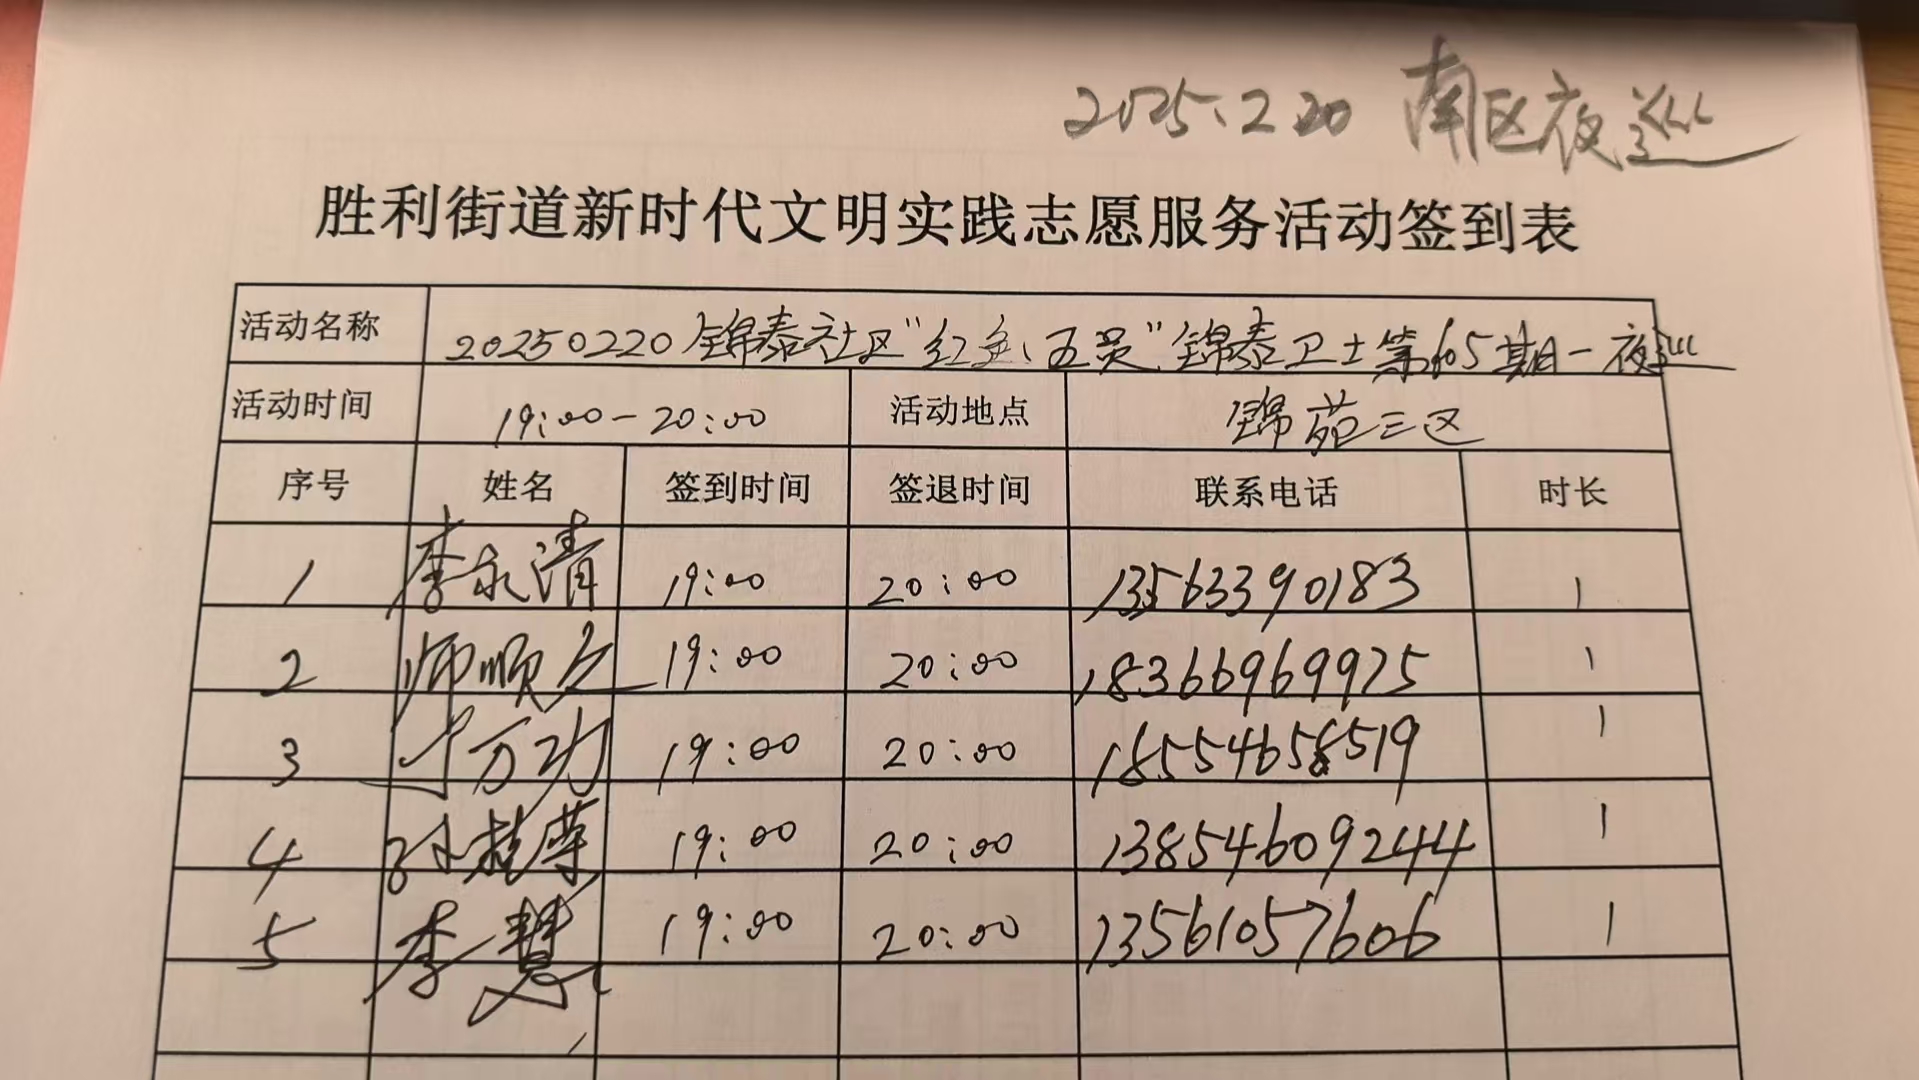 2025.2.20 南区夜巡
胜利街道新时代文明实践志愿服务活动签到表
活动名称 20250220锦泰社区“红色五员”锦泰卫士第605期-夜巡
活动时间 19:00-20:00 活动地点 锦苑三区
序号 姓名 签到时间 签退时间 联系电话 时长
1 李永清 19:00 20:00 13563390183 1
2 师顺之 19:00 20:00 18366969975 1
3 万功 19:00 20:00 18554658519 1
4 孙 19:00 20:00 138546092444 1
5 李慧 19:00 20:00 13561057606 1